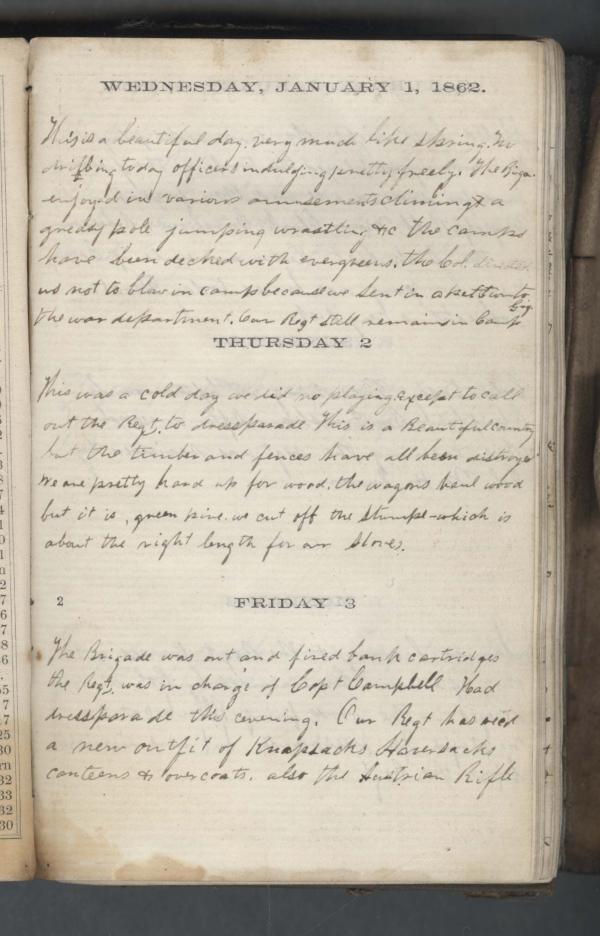 WEDNESDAY, JANUARY 1, 1862.
This is a beautiful day. very much like spring. No
drilling today officers indulging pretty freely. The Briga-
enjoyed in various amusements climingt a
greasy pole jumping wrastling &c the camps
have been decked with evergreens. the Col.
us not to blow in camp because we sent in a petition to
the war department. Our Regt still remains in Camp
THURSDAY 2
This was a cold day we did no playing except to call
out the Regt. to dressparade This is a Beautiful country
but the timber and fences have all been distroyed
We are pretty hard up for wood. the wagons haul wood
but it is, green pine. we cut off the stumps - which is
about the right length for our stoves.
2
FRIDAY 3
The Brigade was out and fired bank cartridges
the Regt. was in charge of Capt Campbell Had
dressparade this evening. Our Regt has
a new outfit of Knapsacks Haversacks
canteens & overcoats. also the Austrian Rifle
25
30
32
33
32
30